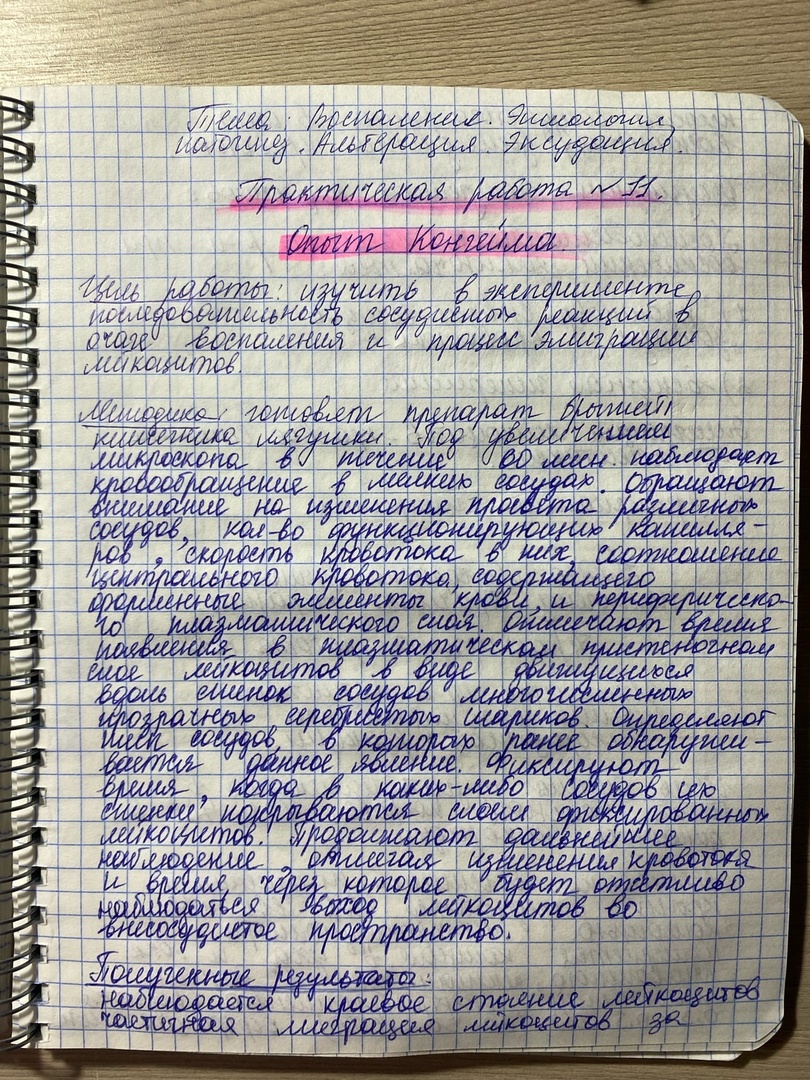 Тема: Воспаление. Этиология,
патогенез. Альтерация. Экссудация.
Практическая работа №11.
Опыт Конгейма.
Цель работы: изучить в эксперименте
последовательность сосудистых реакций в
очаге воспаления и процесс эмиграции
лейкоцитов.
Методика: готовят препарат брыжейки
кишечника лягушки. Под увеличением
микроскопа в течение 60 мин. наблюдают
кровообращение в мелких сосудах. Обращают
внимание на изменения просвета различных
сосудов, кол-во функционирующих капилля-
ров, скорость кровотока в них, соотношение
центрального кровотока, содержащего
форменные элементы крови, и периферическо-
го плазматического слоя. Отмечают время
появления в плазматическом пристеночном
слое лейкоцитов в виде движущихся
вдоль стенок сосудов многочисленных
прозрачных серебристых шариков. Определяют
тип сосудов, в которых ранее обнаружи-
вается данное явление. Фиксируют
время, когда в каких-либо сосудов их
стенки покрываются слоем фиксированных
лейкоцитов. Продолжают дальнейшие
наблюдение, отмечая изменения кровотока
и время, через которое будет отчетливо
наблюдаться выход лейкоцитов во
внесосудистое пространство.
Полученные результаты:
наблюдается краевое стояние лейкоцитов
частичная миграция лейкоцитов за